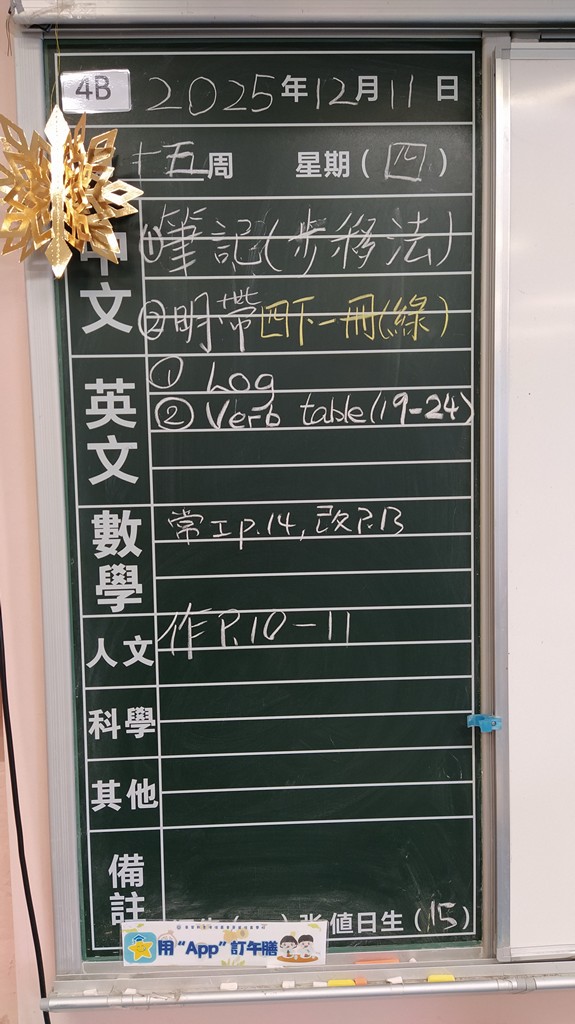 4B 2025年12月11日
十五周 星期(四)
中文 ①筆記(步移法)
②明帶四下一冊(綠)
英文 ① Log
② Verb table(19-24)
數學 常工p.14, 改P.13
人文 作P.10-11
科學
其他
備註
張 值日生(15)
用“App”訂午膳